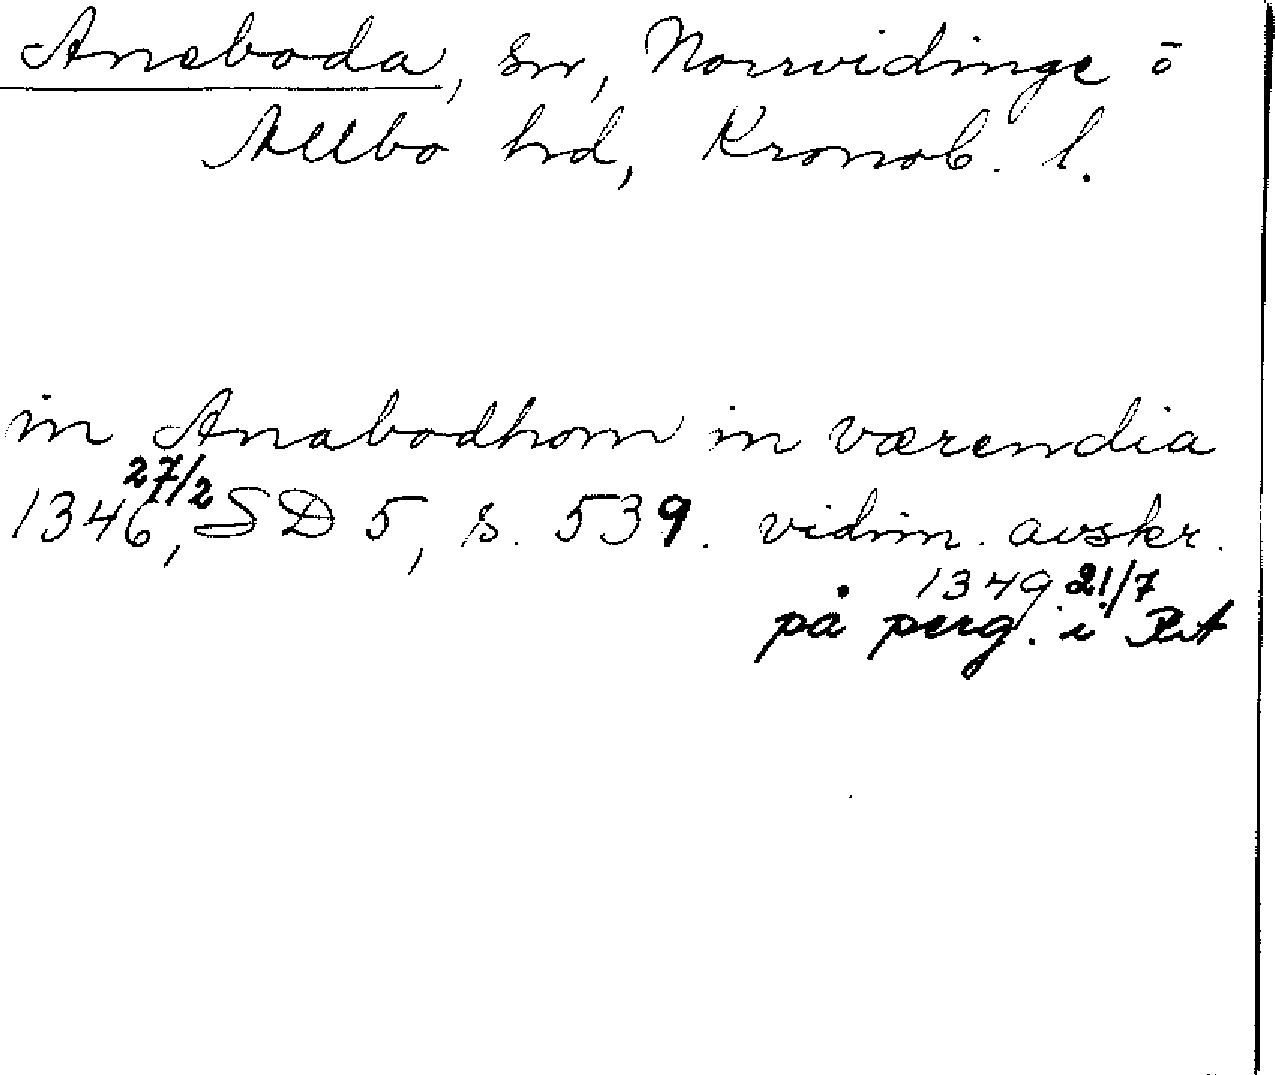 Aneboda, sn, Norrvidinge o
Allbo hd, Kronob. l.
in Anabodhom in værendia
1346 27/2, SD 5, s. 539. vidim. avskr.
1349 21/7
på perg. i RA